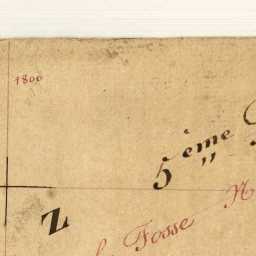 1800
5ème
Z
la Fosse N